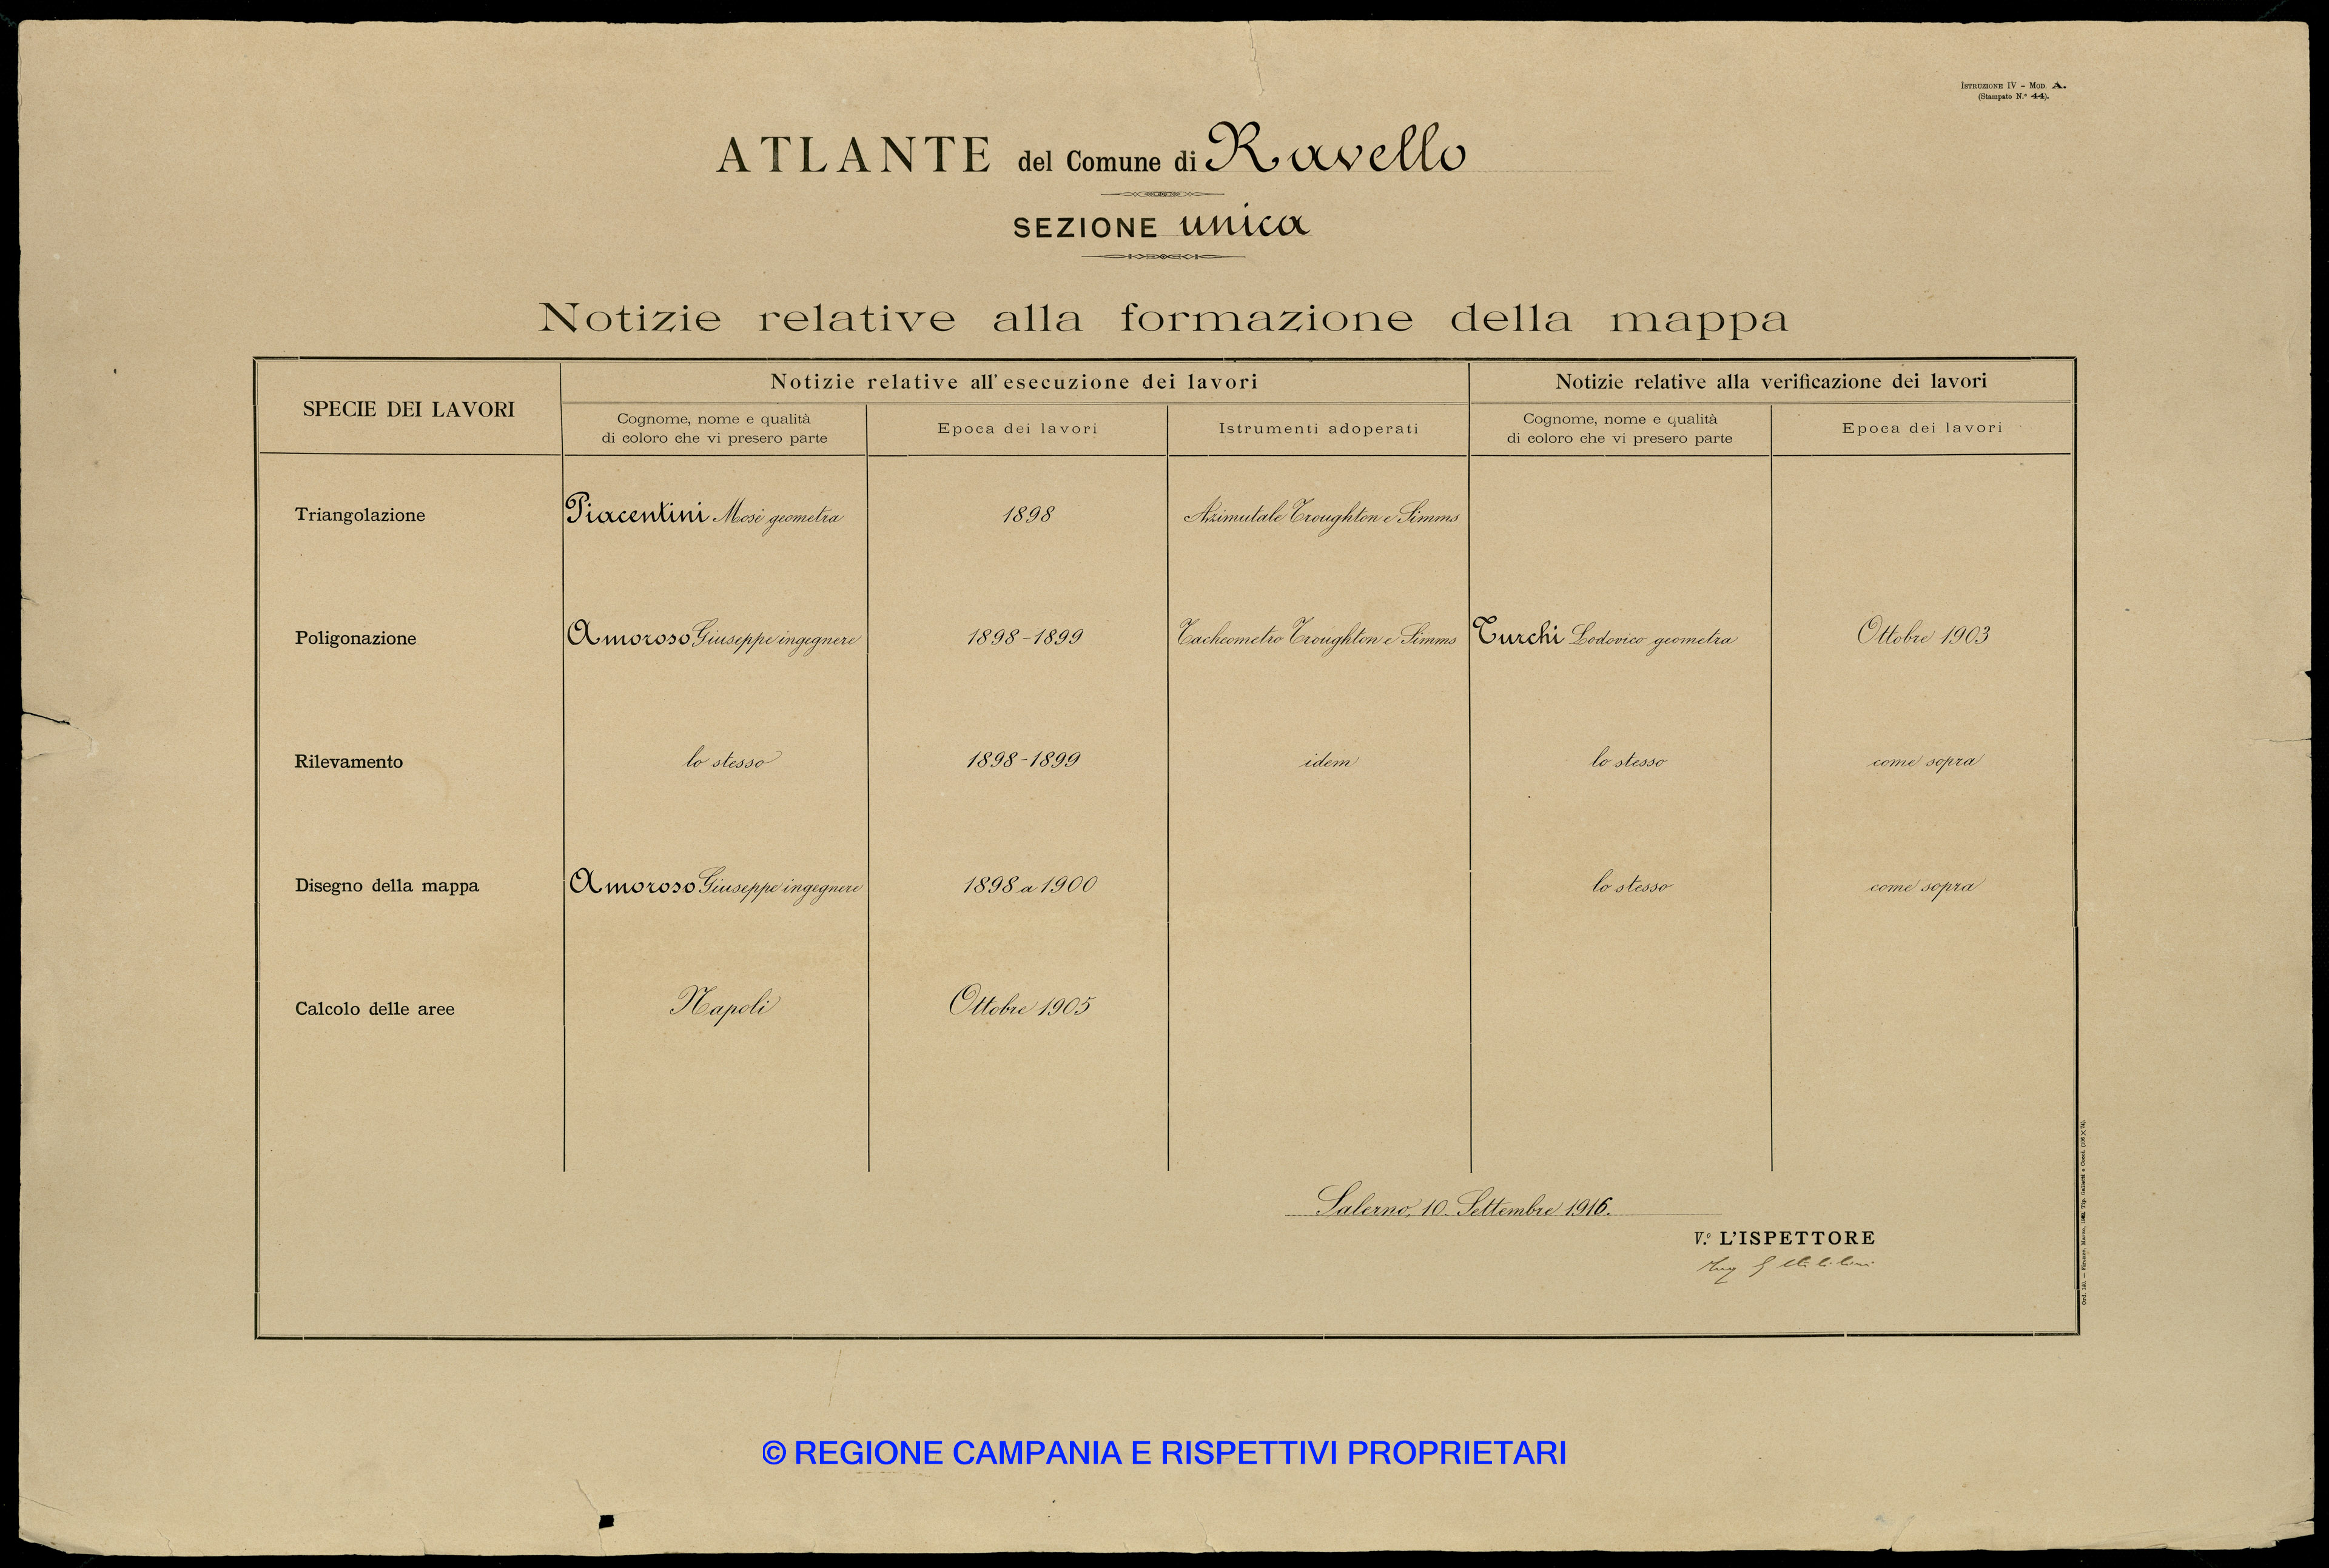 ISTRUZIONE IV - MOD. A.
(Stampato N.° 44).
ATLANTE del Comune di Ravello
SEZIONE unica
Notizie relative alla formazione della mappa
SPECIE DEI LAVORI
Notizie relative all'esecuzione dei lavori
Notizie relative alla verificazione dei lavori
Cognome, nome e qualità
di coloro che vi presero parte
Epoca dei lavori
Istrumenti adoperati
Cognome, nome e qualità
di coloro che vi presero parte
Epoca dei lavori
Triangolazione Piacentini Mosè geometra 1898 Azimutale Troughton e Simms
Poligonazione Amoroso Giuseppe ingegnere 1898-1899 Tacheometro Troughton e Simms Turchi Lodovico geometra Ottobre 1903
Rilevamento lo stesso 1898-1899 idem lo stesso come sopra
Disegno della mappa Amoroso Giuseppe ingegnere 1898 a 1900 lo stesso come sopra
Calcolo delle aree Napoli Ottobre 1905
Salerno, 10. Settembre 1916.
V.° L'ISPETTORE
Ing G
© REGIONE CAMPANIA E RISPETTIVI PROPRIETARI